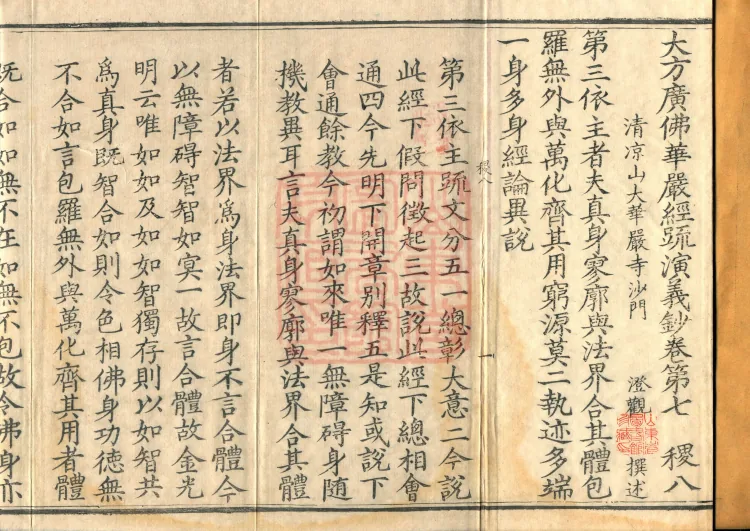 大方廣佛華嚴經疏演義鈔卷第七 稷八
清凉山大華嚴寺沙門 澄觀 撰述
第三依主者夫真身寥廓與法界合其體包
羅無外與萬化齊其用窮源莫二執迹多端
一身多身經論異說
稷八 一
第三依主䟽文分五一總彰大意二今說
此經下假問徵起三故說此經下總相會
通四今先明下開章別釋五是知或說下
會通餘教今初謂如來唯一無障碍身随
機教異耳言夫真身寥廓與法界合其體
者若以法界爲身法界即身不言合體今
以無障碍智智如冥一故言合體故金光
明云唯如如及如如智獨存則以如智共
爲真身既智合如則令色相佛身功德無
不合如言包羅無外與萬化齊其用者體
既合如如無不在如無不包故令佛身亦